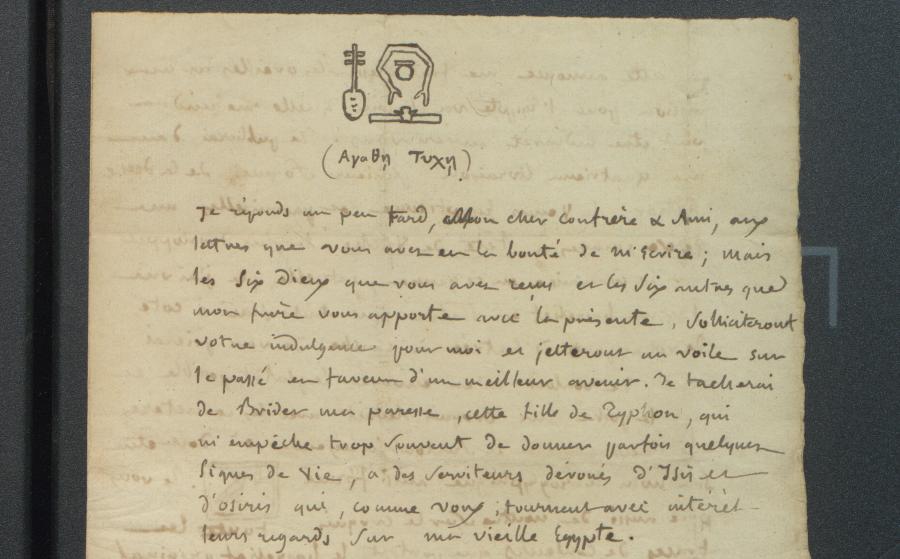 (Αγαθη Τυχη)
Je réponds un peu tard, Mon cher Confrère & Ami, aux
lettres que vous avez eu la bonté de m'Ecrire ; mais
les Six Dieux que vous avez reçus et les Six autres que
mon frère vous apporte avec la présente, Solliciteront
votre indulgence pour moi et jetteront un voile sur
le passé en faveur d'un meilleur avenir. Je tacherai
de Brider ma paresse, cette fille de Typhon, qui
m'empêche trop Souvent de donner parfois quelques
Signes de Vie, a des Serviteurs dévoués d'Isis et
d'osiris qui, comme vous, tournent avec intérêt
leurs regards Sur ma vieille Egypte.